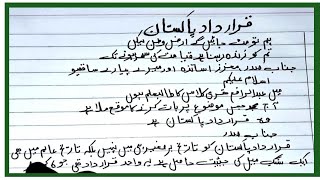 قرارداد پاکستان
ہم تو مٹ جائیں گے ارض وطن لیکن
تم کو زندہ رہنا ہے قیامت کی سحر ہونے تک
جناب صدر معزز اساتذہ اور میرے پیارے ساتھیو
اسلام علیکم
میں عبدالرافع کا طالبعلم ہوں
آج مجھے جس موضوع پر بات کرنے کا موقع ملا ہے
وہ قرارداد پاکستان ہے
جناب صدر
قرارداد پاکستان کو تاریخ برصغیر ہی میں نہیں بلکہ تاریخ عالم میں بھی
ایک سنگ میل کی حیثیت حاصل ہے یہ واحد قرارداد تھی جو